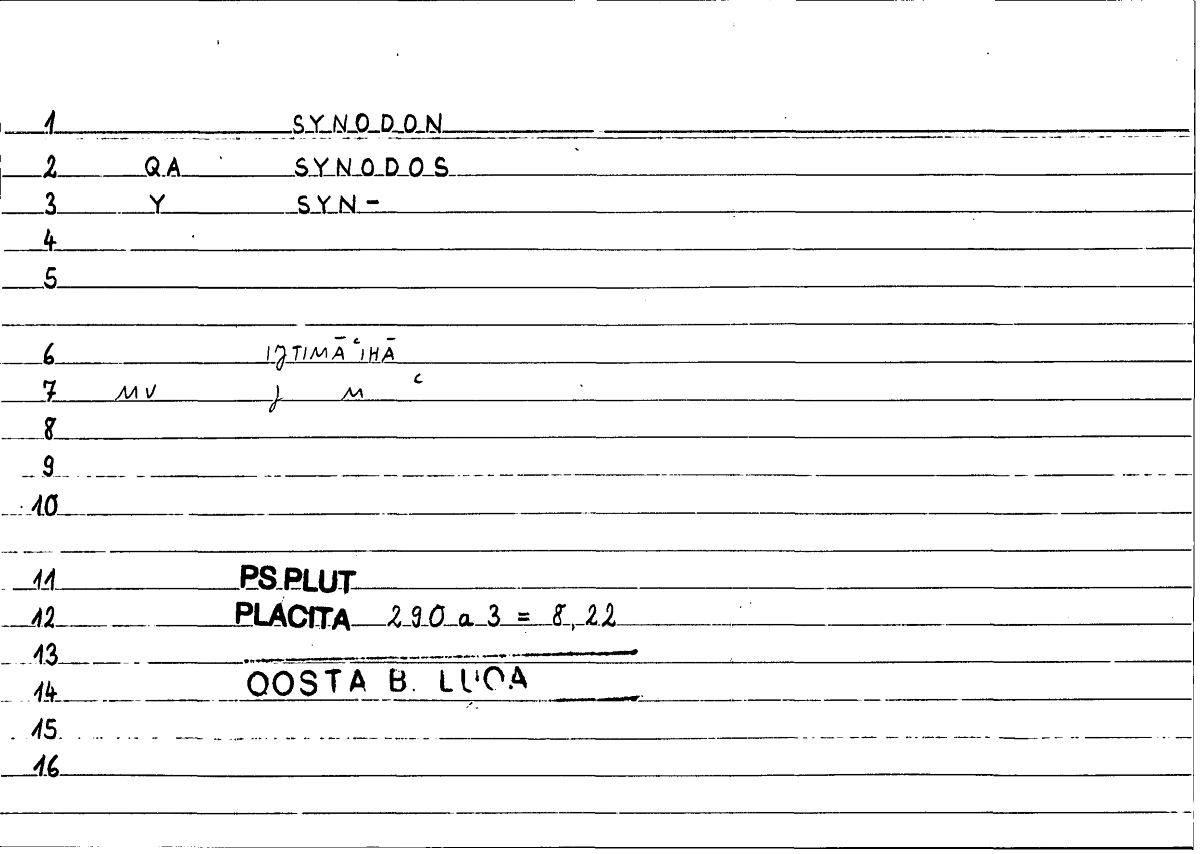 1 SYNODON
2 QA SYNODOS
3 Y SYN-
4
5
6 IJTIMĀʿIHĀ
7 MV J M ʿ
8
9
10
11 PS.PLUT
12 PLACITA 290 a 3 = 8,22
13
14 QOSTA B. LUQA
15
16